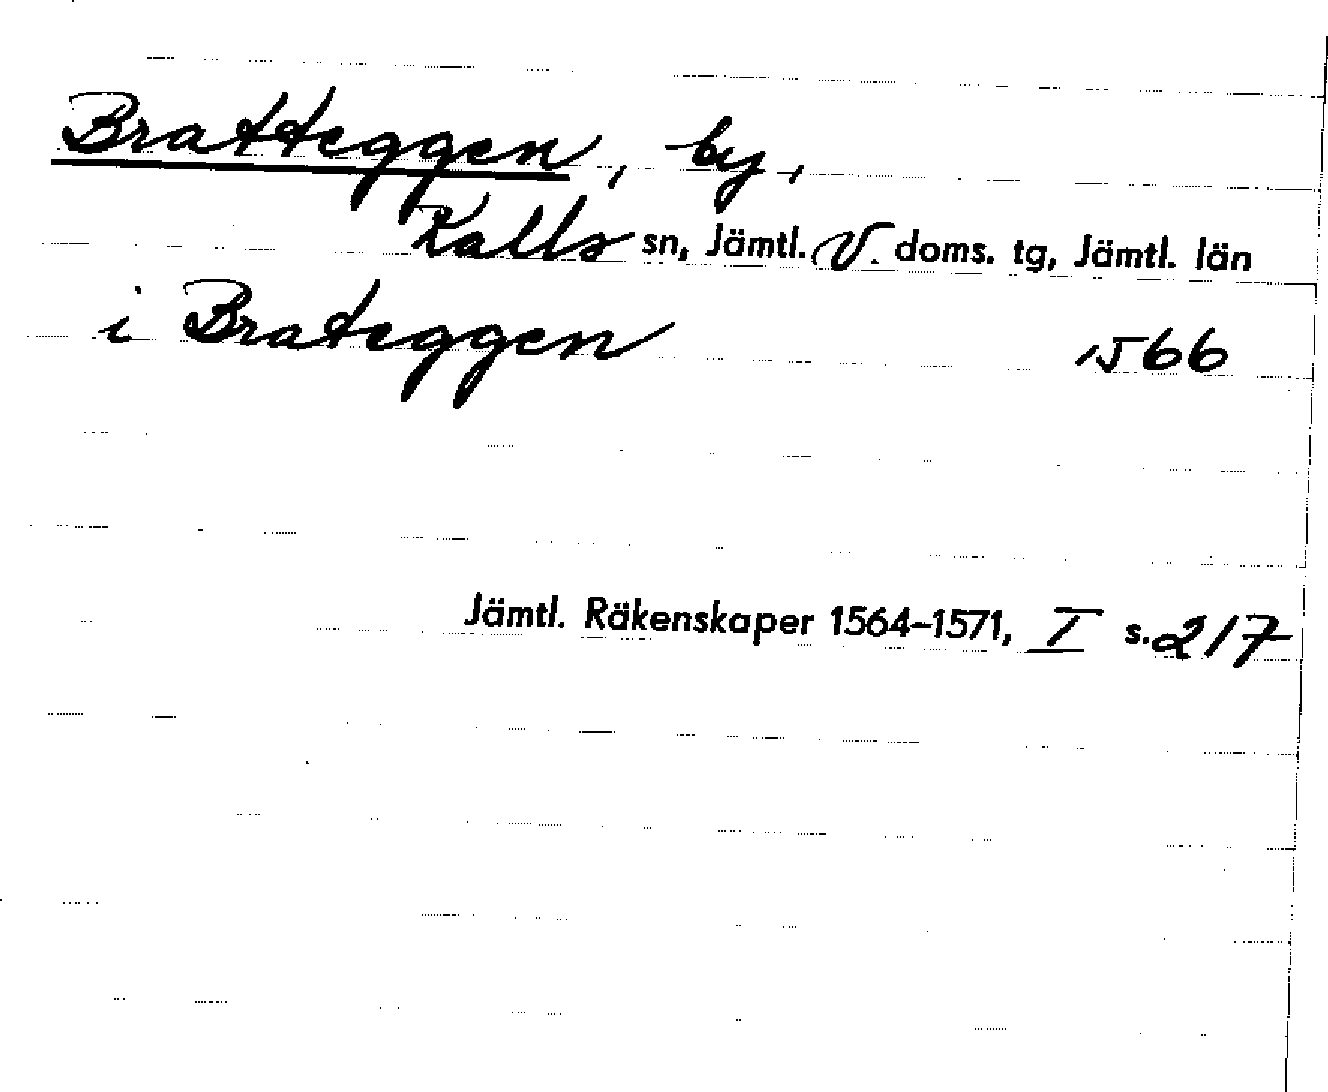 Bratteggen, by,
Kalls sn, Jämtl. V. doms. tg, Jämtl. län
i Brateggen 1566
Jämtl. Räkenskaper 1564-1571, I s. 217